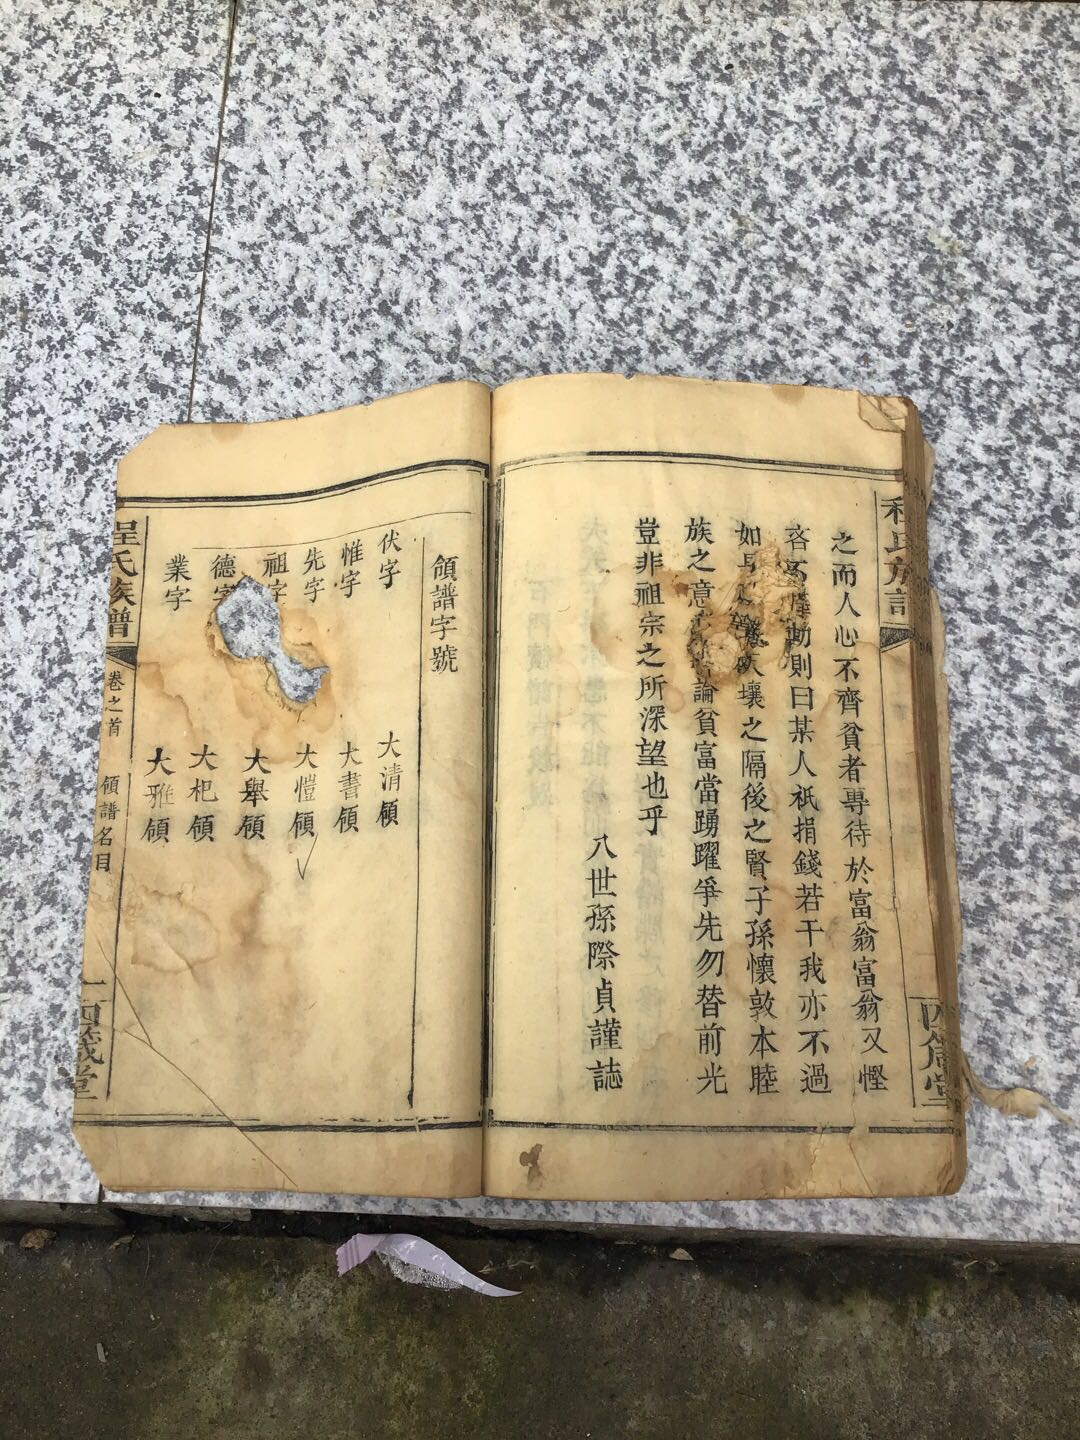 程氏族譜
四箴堂
之而人心不齊貧者專待於富翁富翁又慳
吝不 動則曰某人祇捐錢若干我亦不過
如 壤之隔後之賢子孫懷敦本睦
族之意 論貧富當踴躍爭先勿替前光
豈非祖宗之所深望也乎
八世孫際貞謹誌
領譜字號
伏字 大清領
惟字 大書領
先字 大愷領
祖字 大舉領
德字 大杞領
業字 大雅領
程氏族譜
卷之首
領譜名目
四箴堂